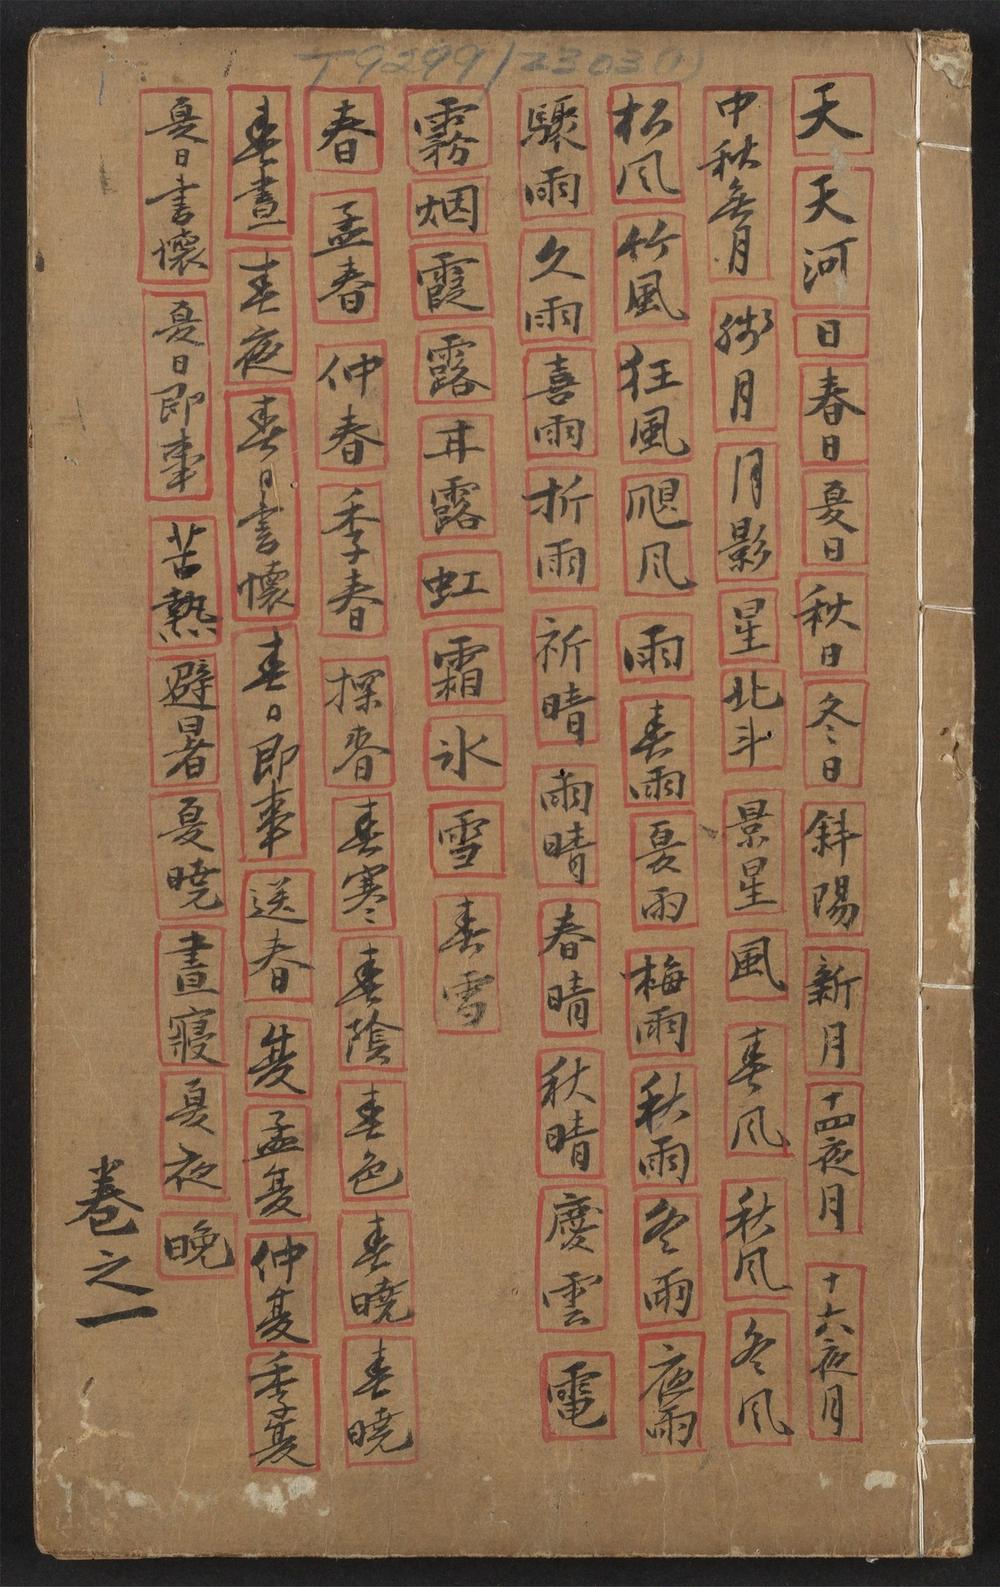 T9299/2303(1)
天 天河 日 春日 夏日 秋日 冬日 斜陽 新月 十四夜月 十六夜月
中秋無月 殘月 月影 星 北斗 景星 風 春风 秋风 冬风
松风 竹風 狂風 颶风 雨 春雨 夏雨 梅雨 秋雨 冬雨 夜雨
驟雨 久雨 喜雨 折雨 祈晴 雨晴 春晴 秋晴 慶雲 電
霧 烟 霞 露 甘露 虹 霜 氷 雪 春雪
春 孟春 仲春 季春 探春 春寒 春陰 春色 春曉 春曉
春晝 春夜 春日書懷 春日即事 送春 夏 孟夏 仲夏 季夏
夏日書懷 夏日即事 苦熱 避暑 夏曉 晝寢 夏夜 晚
卷之一